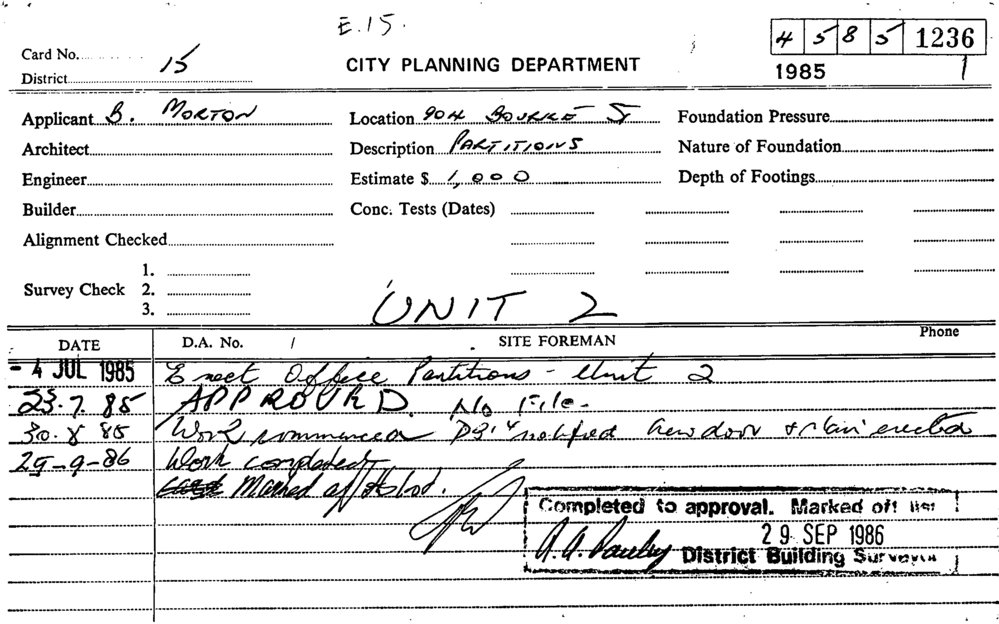 E.15.
4 5 8 5 1236
Card No. 15
District
CITY PLANNING DEPARTMENT
1985 1
Applicant B. MORTON Location 904 BOURKE ST Foundation Pressure
Architect Description PARTITIONS Nature of Foundation
Engineer Estimate $ 1,000 Depth of Footings
Builder Conc. Tests (Dates)
Alignment Checked
1.
Survey Check 2.
3.
UNIT 2
DATE D.A. No. / SITE FOREMAN Phone
- 4 JUL 1985 Erect Office Partitions - Unit 2
23.7.85 APPROVED. No File.
30.8.85 Work commenced notified new door & stair erected
29-9-86 Work completed
Marked off
Completed to approval. Marked off list
29 SEP 1986
District Building Surveyor